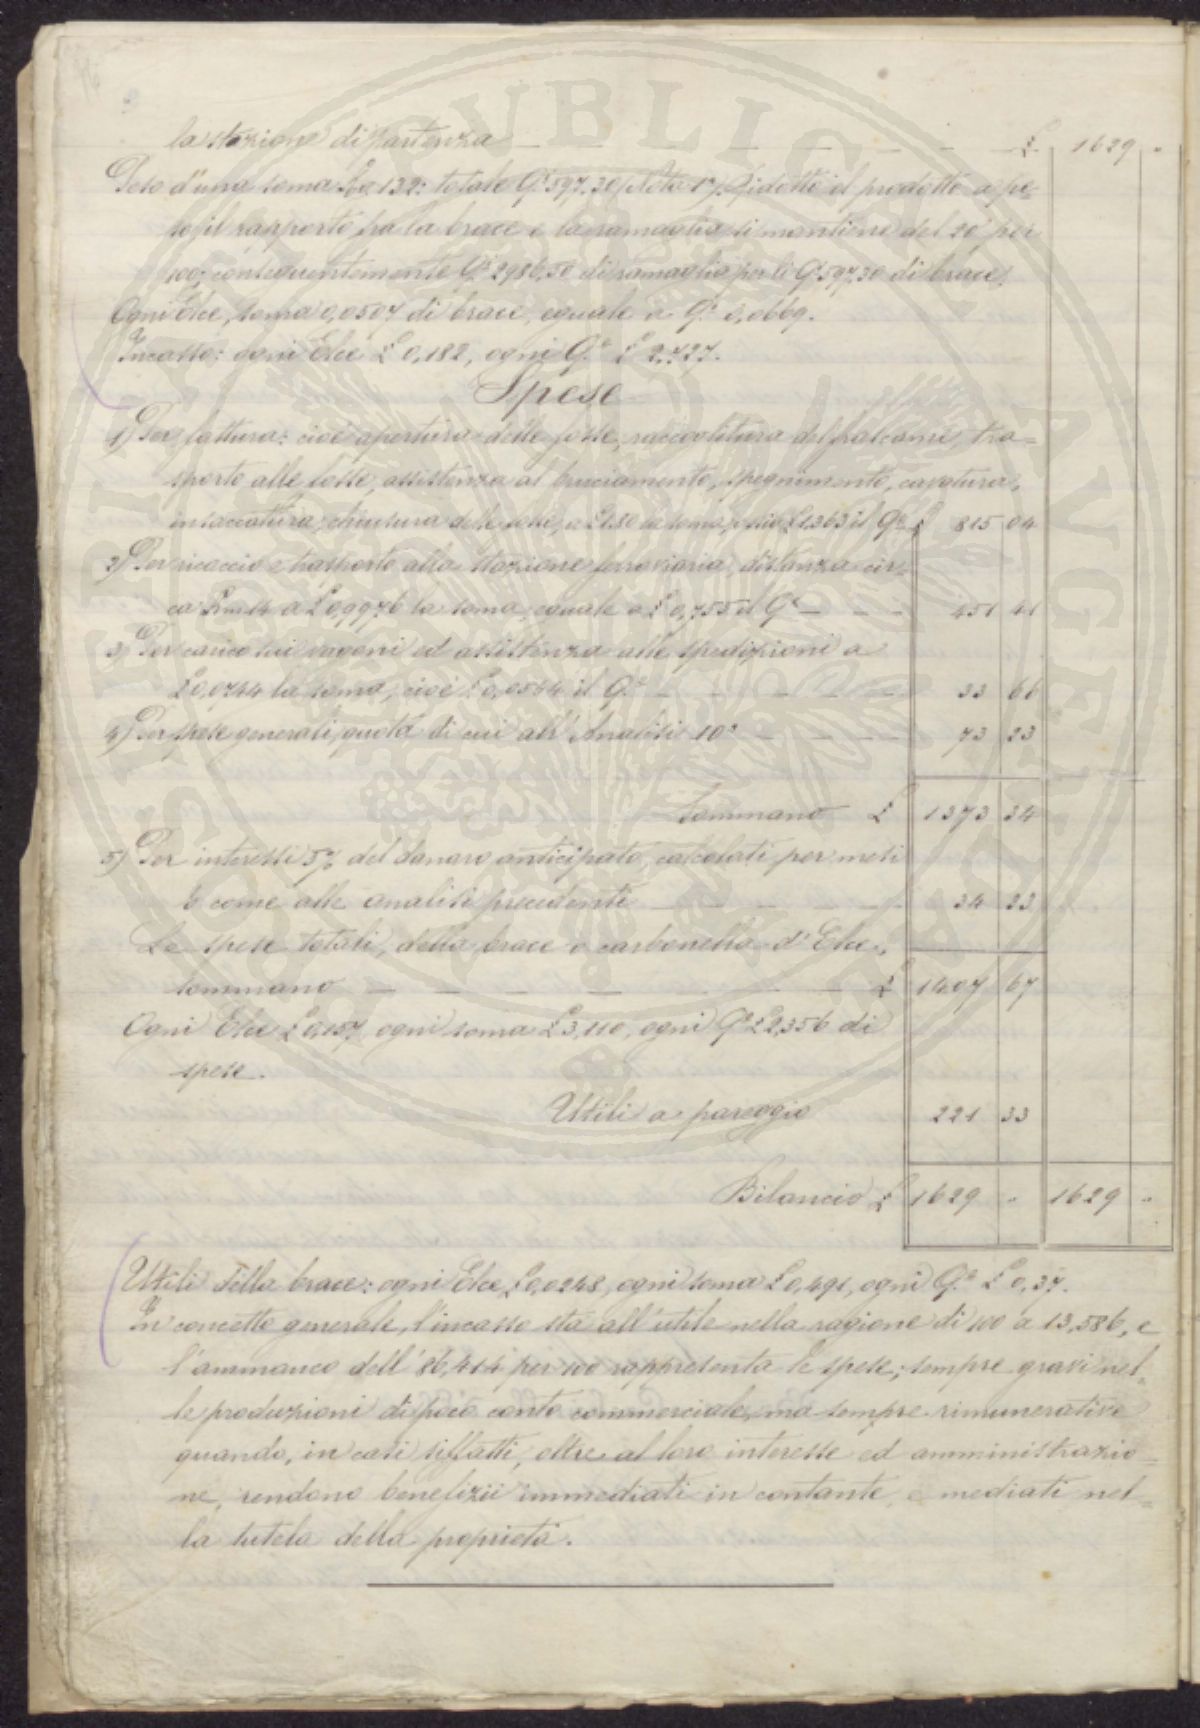 la stazione di partenza — — — — — — £ 1629 "
Peso d'una soma Kg. 132: totale Q.li 597.30 (Nota 1ª). Ridotto il prodotto a pe-
so, il rapporto fra la brace e la ramaglia si mantiene del 20 per
100; conseguentemente Q.li 2986,50 di ramaglia per li Q.li 597,30 di brace.
Ogni Elce, soma 0,0507 di brace, eguale a Q.le 0,0669.
Incasso: ogni Elce £ 0,182, ogni Q.le £ 2,727.
Spese
1) Per fattura: cioè apertura delle fosse, raccoglitura del frascame, tra-
sporto alle fosse, assistenza al bruciamento, spegnimento, cavatura,
insaccatura, chiusura delle fosse, a £ 1.80 la soma, ossia £ 1.363 il Q.le £ 815 04
2) Per ricaccio e trasporto alla Stazione ferroviaria, distanza cir-
ca Km. 14 a £ 0,9976 la soma, eguale a £ 0,755 il Q.le — — — 451 41
3) Per carico sui vagoni ed assistenza alle spedizioni a
£ 0,0744 la soma, cioè £ 0,0564 il Q.le — — — — — 33 66
4) Per spese generali, quota di cui all'Analisi 10ª — — — — 73 23
Sommano £ 1373 34
5) Per interessi 5% del danaro anticipato, calcolati per mesi
6 come alle analisi precedenti — — — — — 34 33
Le spese totali, della brace o carbonella d'Elce,
sommano — — — — — — — £ 1407 67
Ogni Elce £ 0,157, ogni soma £ 3,110, ogni Q.le £ 2,356 di
spese.
Utili a pareggio 221 33
Bilancio £ 1629 " 1629 "
Utili della brace: ogni Elce £ 0,0248, ogni soma £ 0,491, ogni Q.le £ 0,37.
In concetto generale, l'incasso sta all'utile nella ragione di 100 a 13,586, e
l'ammanco dell'86,414 per 100 rappresenta le spese; sempre gravi nel-
le produzioni di poco conto commerciale, ma sempre rimunerative
quando, in casi siffatti, oltre al loro interesse ed amministrazio-
ne, rendono benefizii immediati in contante, e mediati nel-
la tutela della proprietà.